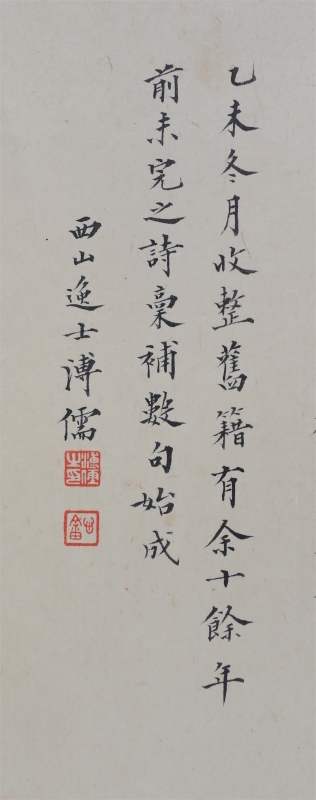 乙未冬月收整舊籍有余十餘年
前未完之詩稾補數句始成
西山逸士溥儒
溥儒之印